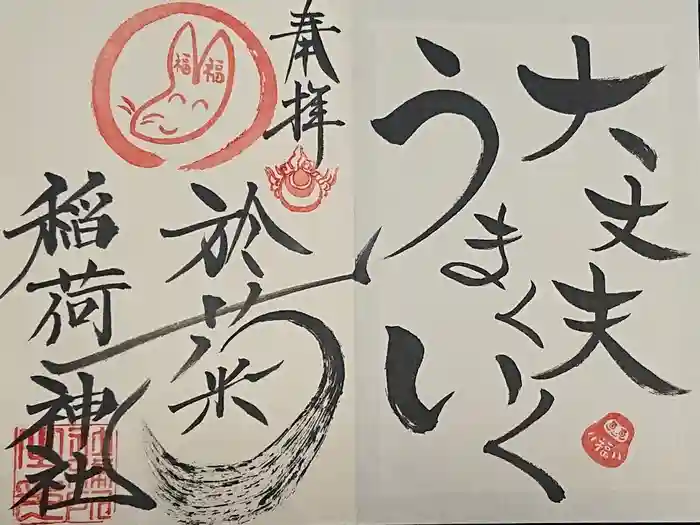 大丈夫
うまくいく
い
奉拝
於菊
稲荷神社
福
福
福